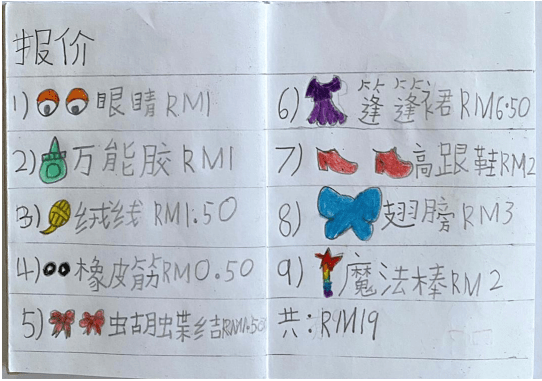 报价
1) 眼睛 RM1
2) 万能胶 RM1
3) 绒线 RM1.50
4) 橡皮筋 RM0.50
5) 蝴蝶结 RM1.50
6) 篷篷裙 RM6.50
7) 高跟鞋 RM2
8) 翅膀 RM3
9) 魔法棒 RM2
共: RM19